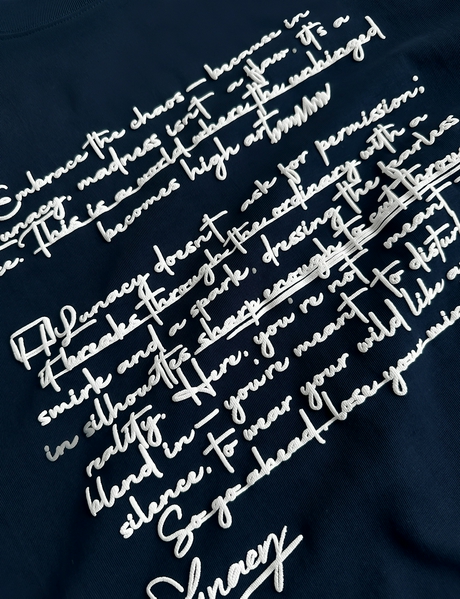 Embrace the chaos—because in
unacy, madness isn't a flaw. It's a
ce. This is a world where the unhinged
becomes high art
Lunacy doesn't ask for permission;
it breaks through the ordinary with a
smirk and a spark, dressing the fearless
in silhouettes sharp enough to cut throu
reality. Here, you're not meant
blend in—you're meant to distur
silence, to wear your wild like a
So go ahead, lose your mi
Lunacy